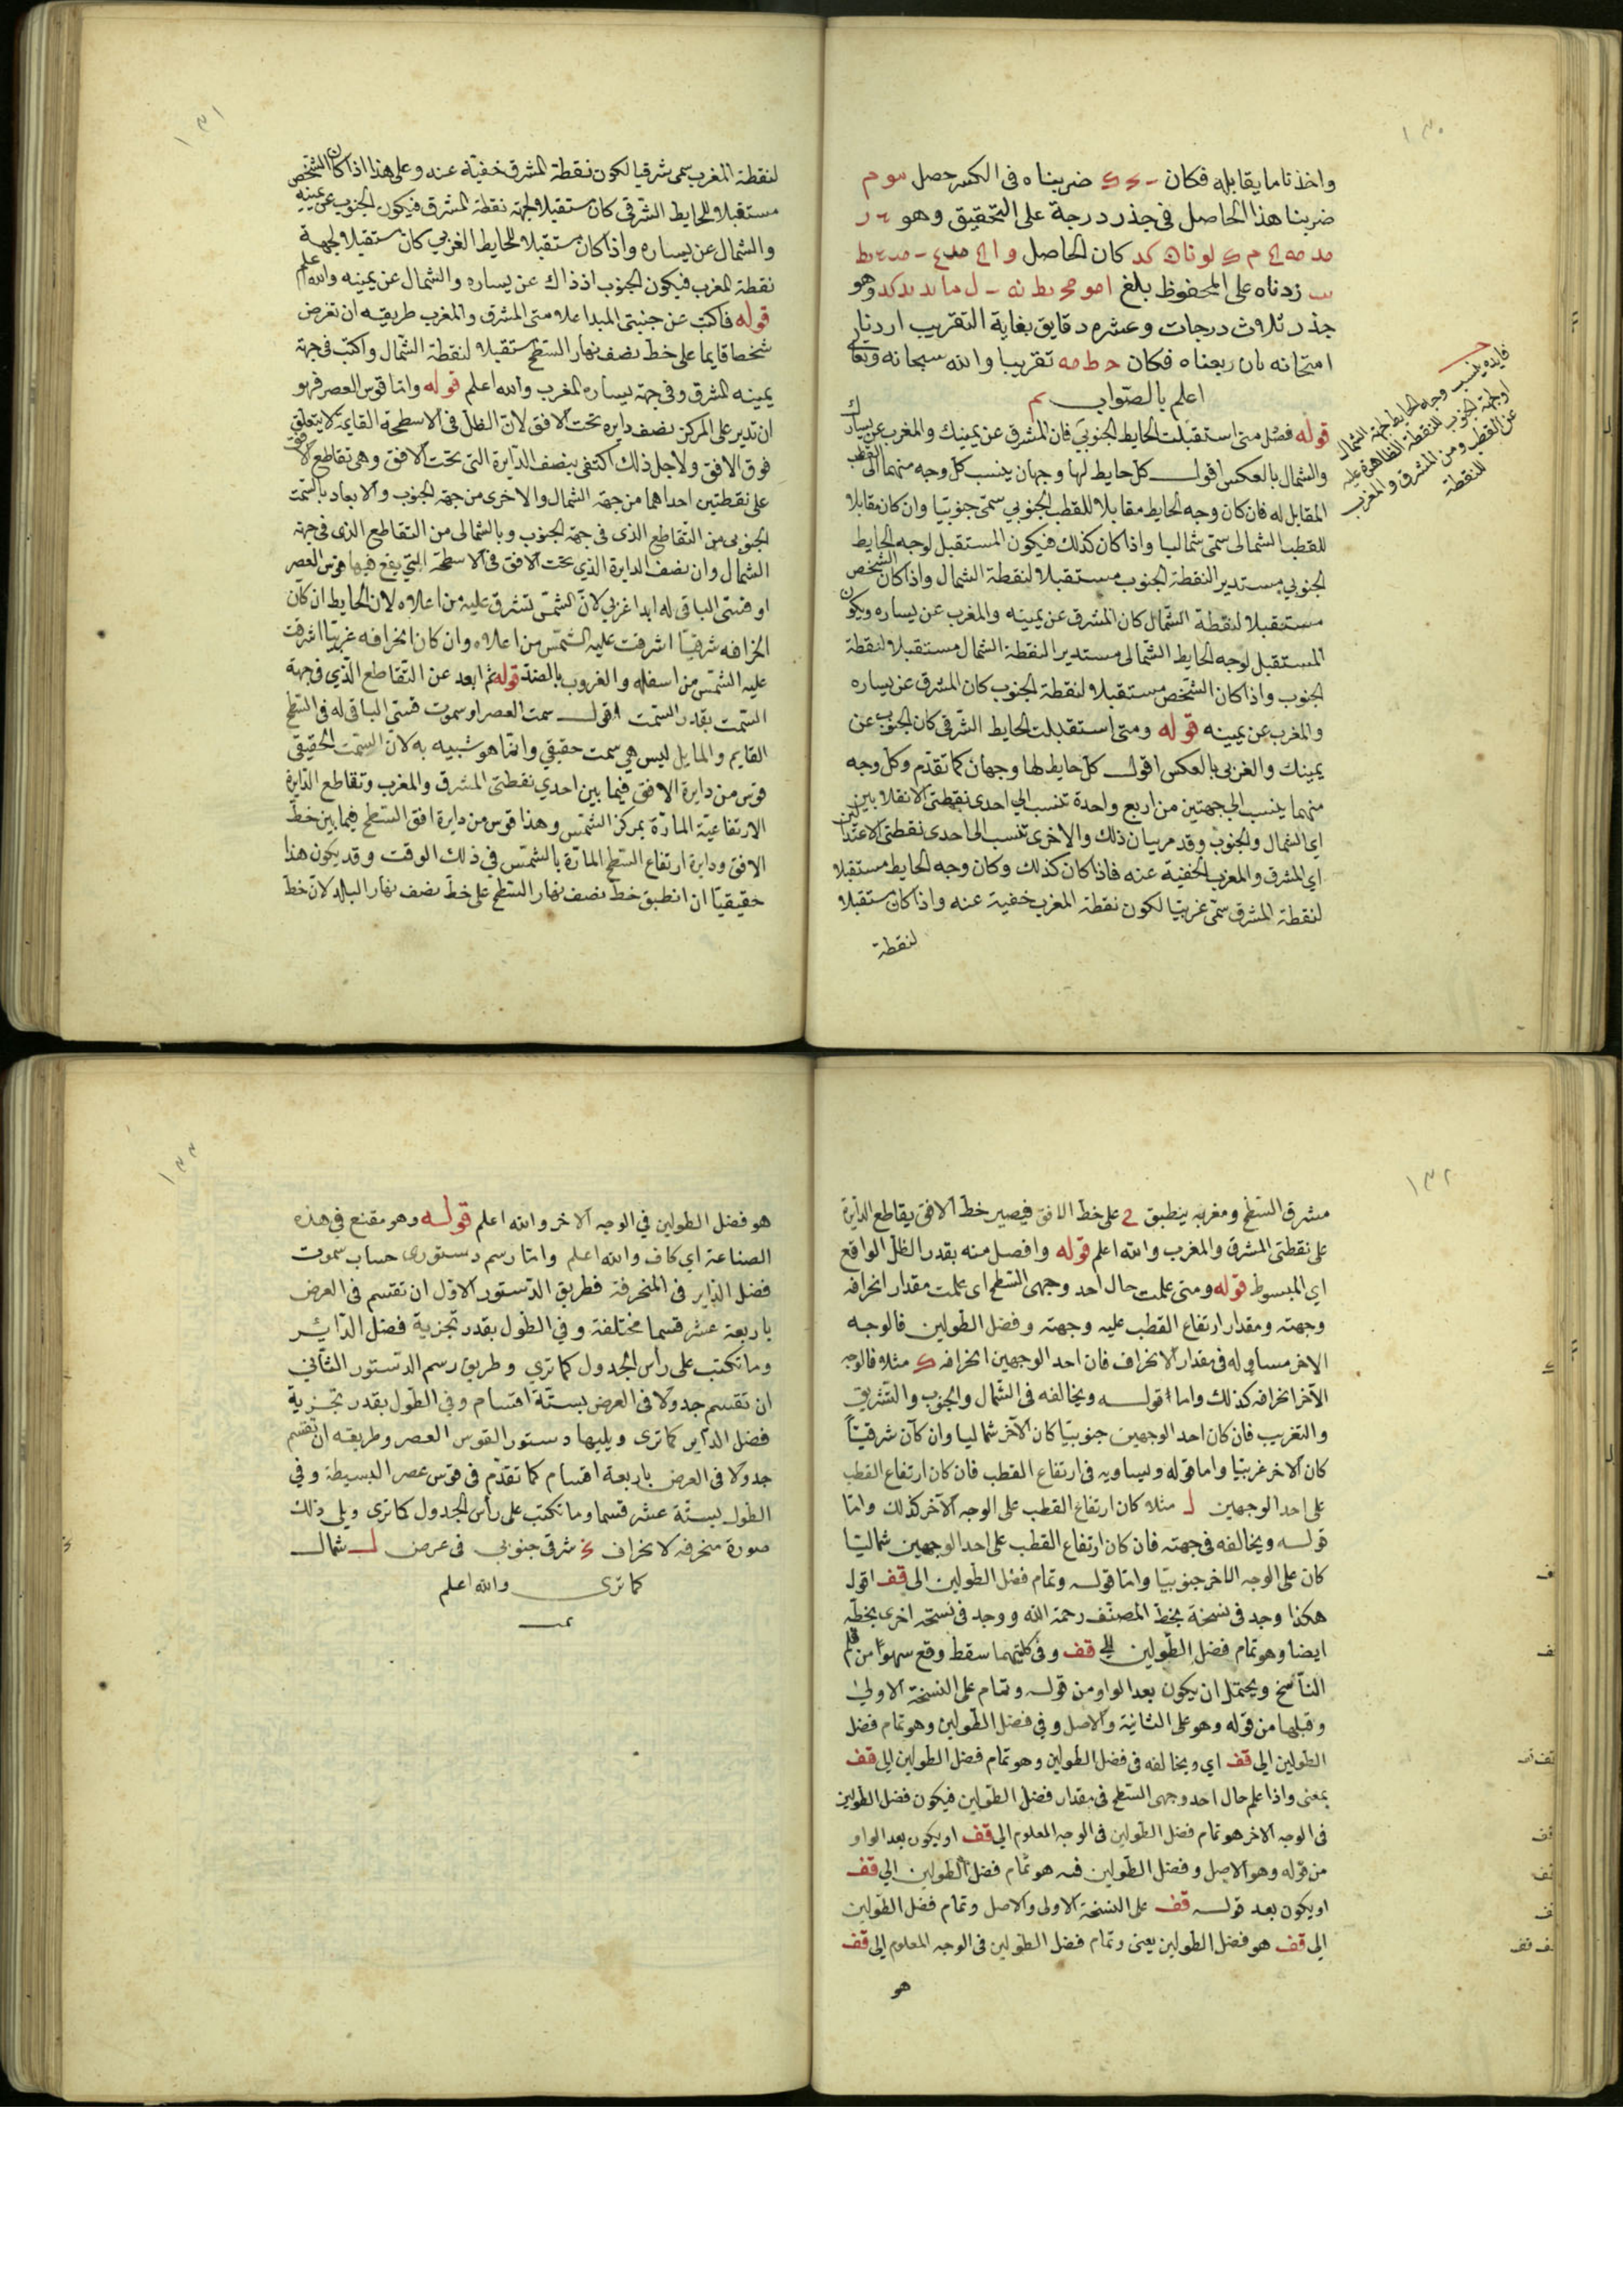 ١٣٠
واخذنا ما يقابله فكان ضربناه فى الكسر حصل
ضربنا هذا الحاصل فى جذر درجة على التحقيق وهو
كان الحاصل
زدناه على المحفوظ بلغ وهو
جذر ثلاث درجات وعشره دقايق بغاية التقريب اردنا
امتحانه بان ربعناه فكان ح ط مه تقريبا والله سبحانه وتعالى
اعلم بالصواب
قوله فصل متى استقبلت الحايط الجنوبى فان المشرق عن يمينك والمغرب عن يسارك
والشمال بالعكس اقول كل حايط لها وجهان ينسب كل وجه منهما الى القطب
المقابل له فان كان وجه الحايط مقابلا للقطب الجنوبي سمّى جنوبيّا وان كان مقابلا
للقطب الشمالى سمّى شماليا واذا كان كذلك فيكون المستقبل لوجه الحايط
الجنوبي مستدير النقطة الجنوب مستقبلا لنقطة الشمال واذا كان الشخص
مستقبلا لنقطة الشمال كان المشرق عن يمينه والمغرب عن يساره ويكون
المستقبل لوجه الحايط الشمالى مستدير النقطة الشمال مستقبلا لنقطة
الجنوب واذا كان الشخص مستقبلا لنقطة الجنوب كان المشرق عن يساره
والمغرب عن يمينه قوله ومتى استقبلت الحايط الشرقى كان الجنوب عن
يمينك والغربى بالعكس اقول كل حايط لها وجهان كما تقدّم وكل وجه
منهما ينسب الى جهتين من اربع واحدة تنسب الى احدى نقطتى الانقلابين
اى الشمال والجنوب وقد مر بيان ذلك والاخرى تنسب الى احدى نقطتى الاعتدالين
اى المشرق والمغرب الخفية عنه فاذا كان كذلك وكان وجه الحايط مستقبلا
لنقطة المشرق سمّى غربيّا لكون نقطة المغرب خفية عنه واذا كان مستقبلا
لنقطة
فايده ينسب وجه الحايط لجهة الشمال
او لجهة الجنوب للنقطة الظاهرة عليه
عن القطب ومن المشرق والمغرب
للنقطة
١٣١
لنقطة المغرب سمى شرقيا لكون نقطة المشرق خفيّة عنه وعلى هذا اذا كان الشخص
مستقبلا للحايط الشرقى كان مستقبلا لجهة نقطة المشرق فيكون الجنوب عن يمينه
والشمال عن يساره واذا كان مستقبلا للحايط الغربي كان مستقبلا لجهة
نقطة المغرب فيكون الجنوب اذ ذاك عن يساره والشمال عن يمينه والله اعلم
قوله فاكتب عن جنبتى المبدا علامتى المشرق والمغرب طريقه ان تفرض
شخصا قايما على خط نصف نهار السطح مستقبلا لنقطة الشمال واكتب فى جهة
يمينه المشرق وفى جهة يساره المغرب والله اعلم قوله واما قوس العصر فهو
ان تدير على المركز نصف دايره تحت الافق لانّ الظل فى الاسطحة القايمة لا يتعلق
فوق الافق ولاجل ذلك اكتفى بنصف الدّايرة التى تحت الافق وهى تقاطع الافق
على نقطتين احداهما من جهة الشمال والاخرى من جهة الجنوب والابعاد بالسّمت
الجنوبى من التّقاطع الذى فى جهة الجنوب وبالشمالى من التقاطع الذى فى جهة
الشمال وان نصف الدايرة الذي تحت الافق فى الاسطحة التي يقع فيها قوس العصر
او قسّى الباقى له ابدا غربي لانّ الشمس تشرق عليه من اعلاه لان الحايط ان كان
انحرافه شرقيّا اشرقت عليه الشّمس من اعلاه وان كان انحرافه غربيّا اشرقت
عليه الشّمس من اسفله والغروب بالضد قوله ثم ابعد عن التّقاطع الّذي فى جهة
السّمت بقدر السّمت اقول سمت العصر او سموت قسّى الباقى له فى السّطح
القايم والمايل ليس هي سمت حقيقي وانّما هو شبيه به لانّ السّمت الحقيقى
قوس من دايرة الافق فيما بين احدي نقطتى المشرق والمغرب وتقاطع الدّايرة
الارتفاعيّة المارّة بمركز الشّمس وهذا قوس من دايرة افق السّطح فيما بين خطّ
الافق ودايرة ارتفاع السّطح المارّة بالشّمس في ذلك الوقت وقد يكون هذا
حقيقيّا ان انطبق خطّ نصف نهار السّطح على خطّ نصف نهار البلد لانّ خطّ
١٣٢
مشرق السّطح ومغربه ينطبق على خط الافق فيصير خطّ الافق يقاطع الدّايرة
على نقطتى المشرق والمغرب والله اعلم قوله وافصل منه بقدر الظل الواقع
اي المبسوط قوله ومتى علمت حال احد وجهى السّطح اى علمت مقدار انحرافه
وجهته ومقدار ارتفاع القطب عليه وجهته وفضل الطّولين فالوجه
الاخر مساوٍ له فى مقدار الانحراف فان احد الوجهين انحرافه ك مثلا فالوجه
الآخر انحرافه كذلك واما قوله ويخالفه فى الشّمال والجنوب والتّشريق
والتغريب فان كان احد الوجهين جنوبيّا كان الآخر شماليا وان كان شرقيّاً
كان الاخر غربيّا واما قوله ويساويه فى ارتفاع القطب فان كان ارتفاع القطب
على احد الوجهين ل مثلا كان ارتفاع القطب على الوجه الآخر كذلك وامّا
قوله ويخالفه فى جهته فان كان ارتفاع القطب على احد الوجهين شماليّا
كان على الوجه الاخر جنوبيّا وامّا قوله وتمام فضل الطّولين الى قف اقول
هكذا وجد فى نسخة بخط المصنّف رحمة الله ووجد فى نسخة اخرى بخطّه
ايضا وهو تمام فضل الطّولين الى قف وفى كلتيهما سقط وقع سهوًا من قلم
النّاسخ ويحتمل ان يكون بعد الواو من قوله وتمام على النسخة الاولى
وقبلها من قوله وهو على الثانية والاصل وفى فضل الطّولين وهو تمام فضل
الطولين الى قف اي ويخالفه فى فضل الطولين وهو تمام فضل الطولين الى قف
بمعنى واذا علم حال احد وجهى السّطح فى مقدار فضل الطّولين فيكون فضل الطولين
فى الوجه الاخر هو تمام فضل الطولين فى الوجه المعلوم الى قف او يكون بعد الواو
من قوله وهو الاصل وفضل الطّولين فيه هو تمام فضل الطولين الى قف
او يكون بعد قوله قف على النسخة الاولى والاصل وتمام فضل الطّولين
الى قف هو فضل الطولين يعنى وتمام فضل الطولين فى الوجه المعلوم الى قف
هو
١٣٣
هو فضل الطولين في الوجه الاخر والله اعلم قوله وهو مقنع فى هذه
الصناعة اى كاف والله اعلم وامّا رسم دستورى حساب سموت
فضل الدّاير فى المنحرفة فطريق الدّستور الاوّل ان تقسم فى العرض
باربعة عشر قسما مختلفة وفي الطول بقدر تجزية فضل الدّائر
وما تكتب على رأس الجدول كما ترى وطريق رسم الدستور الثّاني
ان تقسم جدولا فى العرض بستّة اقسام وفي الطّول بقدر تجزية
فضل الدّاير كما ترى ويليها دستور القوس العصر وطريقه ان تقسم
جدولا فى العرض باربعة اقسام كما تقدّم فى قوس عصر البسيطة وفي
الطول بستّة عشر قسما وما تكتب على رأس الجدول كما ترى ويلى ذلك
صورة منحرفه لانحراف شرقى جنوبي فى عرض ل شمال
كما ترى والله اعلم